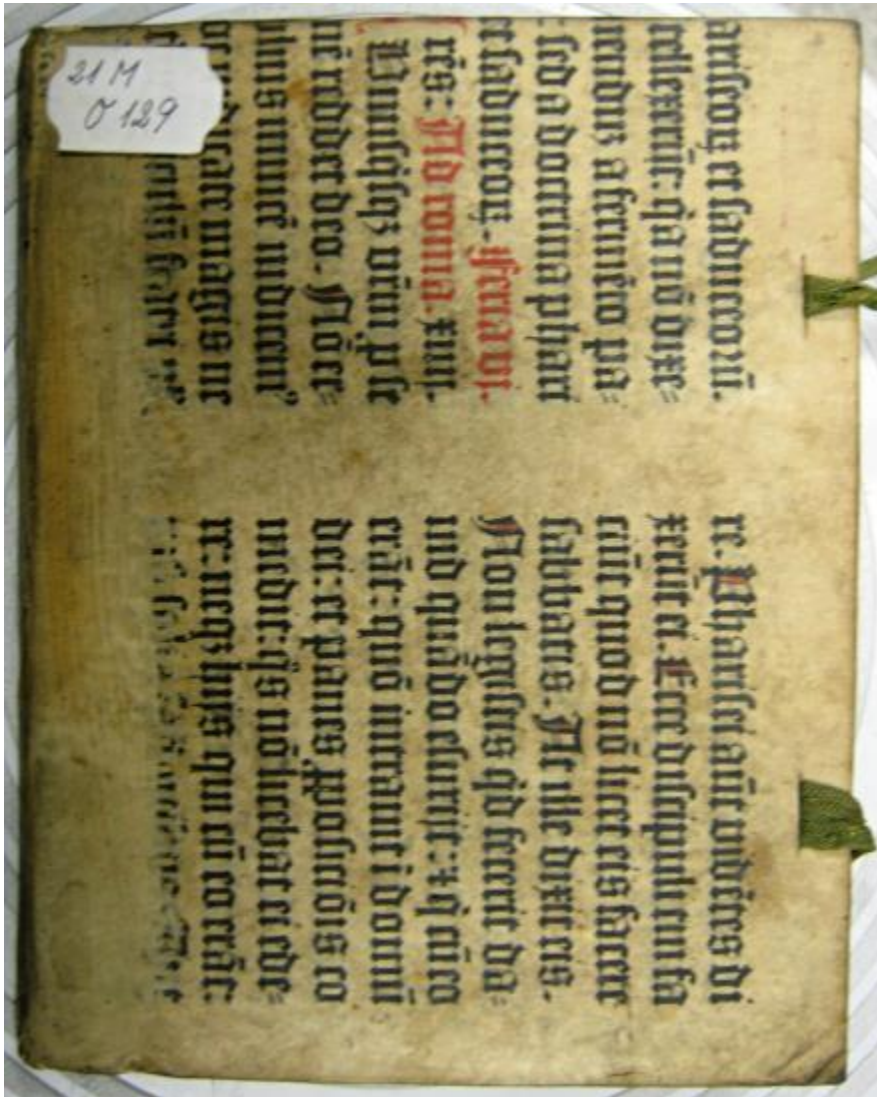 21 M
O 129
ariseoꝝ et saduceorū.
tellexerūt: qͥa nō dixe=
uenduꝫ a fermēto pa=
: sed a doctrina phari
et saduceoꝝ. Feria vi.
res: Ad roma. xiiij.
Vnusqͥsqꝫ vr̄m ꝑ se
nē reddet deo. Nō er=
plius inuicē iudicem'
iudicate magis ne
re. Pharisei aūt vidētes di
xerūt ei. Ecce discipuli tui fa
ciūt quod nō licet eis facere
sabbatis. At ille dixit eis.
Non legistis qͥd fecerit da=
uid quādo esurijt: ⁊ qͥ cū eo
erāt: quō intrauit i domū
dei: et panes ꝓposiciōis co
medit: qͦs nō licebat ei ede=
re: neqꝫ hijs qui cū eo erāt: